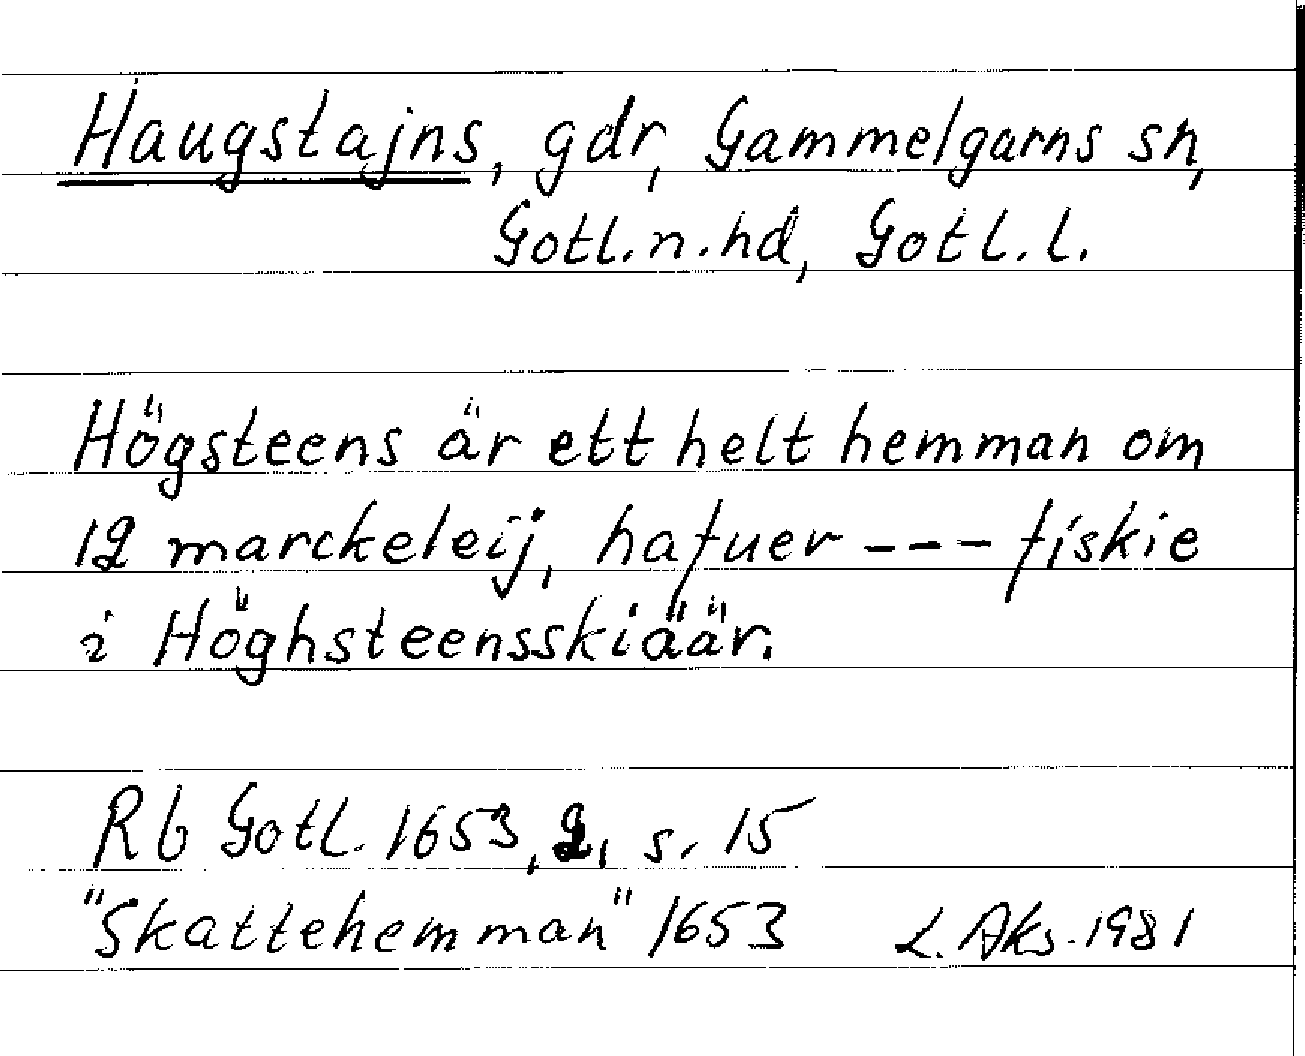 Haugstajns, gdr, Gammelgarns sn,
Gotl. n. hd, Gotl. l.
Högsteens är ett helt hemman om
12 marckeleij, hafuer --- fiskie
i Höghsteensskiäär.
Rb Gotl. 1653, 2, s. 15
"Skattehemman" 1653 L. Aks. 1981